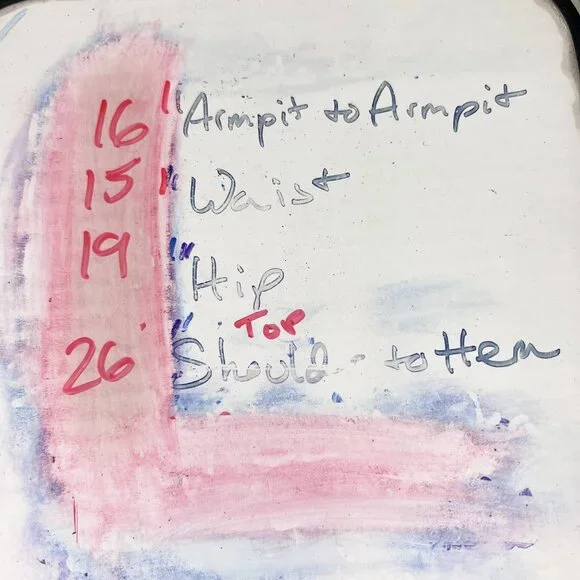 16" Armpit to Armpit
15" Waist
19" Hip
TOP
26" to Hem